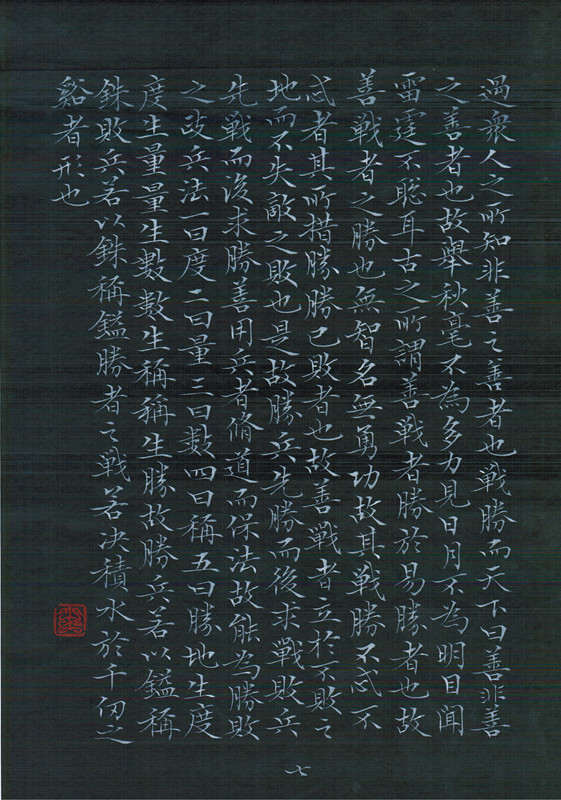 過衆人之所知非善之善者也戰勝而天下曰善非善
之善者也故舉秋毫不為多力見日月不為明目聞
雷霆不聡耳古之所謂善戰者勝於易勝者也故
善戰者之勝也無智名無勇功故其戰勝不忒不
忒者其所措勝勝已敗者也故善戰者立於不敗之
地而不失敵之敗也是故勝兵先勝而後求戰敗兵
先戰而後求勝善用兵者脩道而保法故能為勝敗
之政兵法一曰度二曰量三曰數四曰稱五曰勝地生度
度生量量生數數生稱稱生勝故勝兵若以鎰稱
銖敗兵若以銖稱鎰勝者之戰若決積水於千仞之
谿者形也
七